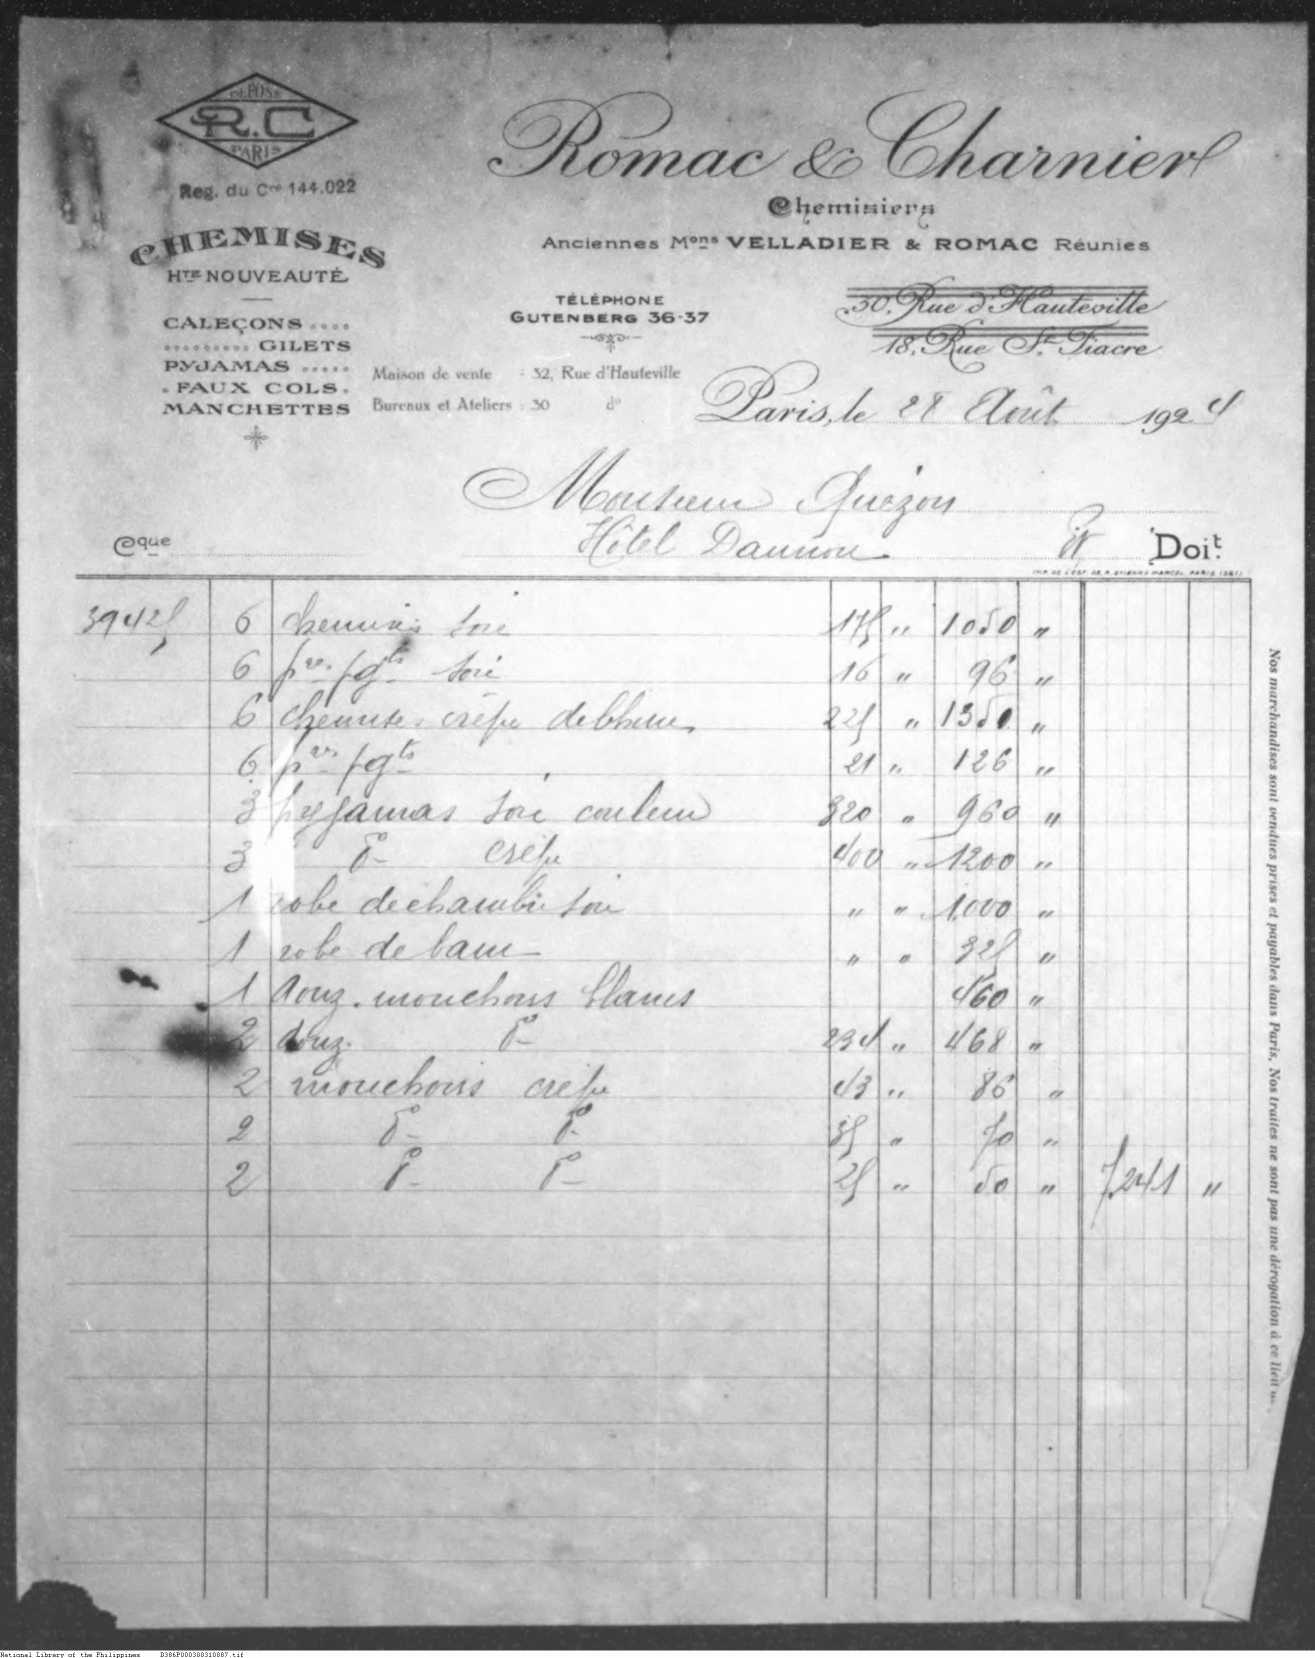 DÉPOSÉ
R.C
PARIS
Reg. du Cce 144.022
CHEMISES
Hte NOUVEAUTÉ
CALEÇONS
GILETS
PYJAMAS
FAUX COLS
MANCHETTES
Romac & Charnier
Chemisiers
Anciennes Mons VELLADIER & ROMAC Réunies
TÉLÉPHONE
GUTENBERG 36-37
30, Rue d'Hauteville
18, Rue St Fiacre
Maison de vente : 32, Rue d'Hauteville
Bureaux et Ateliers : 30 do
Paris, le 28 Août 1924
Monsieur Quézon
Hôtel Daunou
Cque Doit
IMP. DE L'EST. 36, R. ETIENNE MARCEL, PARIS
39425 6 chemises soie 175 " 1050 "
6 pres pgts soie 16 " 96 "
6 chemises crêpe de Chine 225 " 1350 "
6 pres pgts 21 " 126 "
3 pyjamas soie couleur 320 " 960 "
3 do crêpe 400 " 1200 "
1 robe de chambre soie " " 1000 "
1 robe de bain " " 325 "
1 douz. mouchoirs blancs 460 "
2 douz. do 234 " 468 "
2 mouchoirs crêpe 43 " 86 "
2 do do 35 " 70 "
2 do do 25 " 50 " 7.241 "
Nos marchandises sont vendues prises et payables dans Paris. Nos traites ne sont pas une dérogation à ce lieu
National Library of the Philippines B386P000388310887.tif